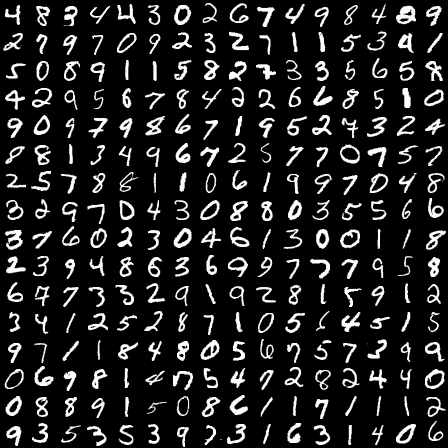 4 8 3 4 4 3 0 2 6 7 4 9 8 4 2 9
2 7 9 7 0 9 2 3 2 7 1 1 5 3 9 1
5 0 8 9 1 1 5 8 2 7 3 3 5 6 5 8
4 2 9 5 6 7 8 4 2 2 6 6 8 5 1 0
9 0 9 7 9 8 6 7 1 9 5 2 7 3 2 4
8 8 1 3 4 9 6 7 2 5 7 7 0 7 5 7
2 5 7 8 8 1 1 0 6 1 9 9 7 0 4 8
3 2 9 7 0 4 3 0 8 8 0 3 5 5 6 6
3 7 6 0 2 3 0 4 6 1 3 0 0 1 1 8
2 3 9 4 8 6 3 6 9 9 7 7 7 9 5 8
6 7 7 3 3 2 9 1 9 2 8 1 5 9 1 2
3 4 1 2 5 2 8 7 1 0 5 4 5 1 5
9 7 1 1 8 4 8 0 5 6 7 5 7 3 9 9
0 6 9 8 1 4 7 5 4 7 2 8 2 4 4 0
0 8 8 9 1 5 0 8 6 1 1 7 1 1 1 2
9 3 5 3 5 3 9 7 3 1 6 3 1 4 0 6